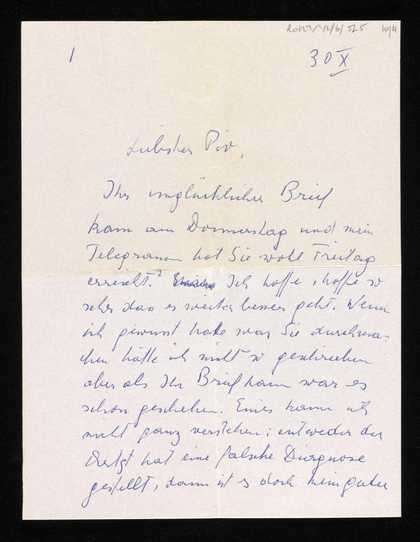 1
30 X
Liebster Pio,
Ihr unglücklicher Brief
kam am Donnerstag und mein
Telegramm hat Sie wohl Freitag
erreicht. Ich hoffe, hoffe so
sehr dass es weiter besser geht. Wenn
ich gewusst habe was Sie durchma-
chen hätte ich nicht so geschrieben
aber als Ihr Brief kam war es
schon geschehen. Eines kann ich
nicht ganz verstehen: entweder der
Arzt hat eine falsche Diagnose
gestellt, dann ist es doch kein guter